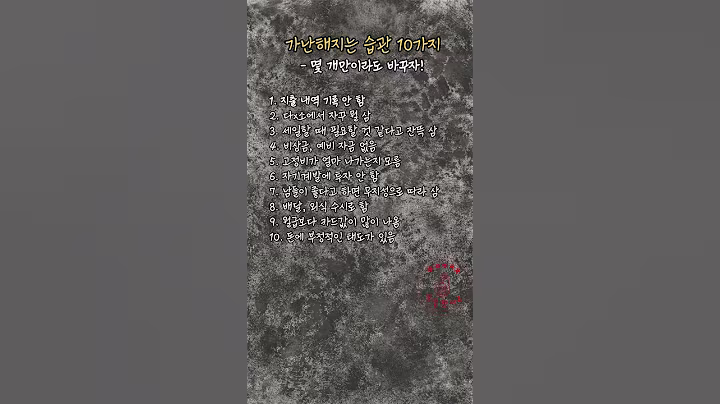 가난해지는 습관 10가지
- 몇 개만이라도 바꾸자!
1. 지출 내역 기록 안 함
2. 다x소에서 자꾸 뭘 삼
3. 세일할 때 필요할 것 같다고 잔뜩 삼
4. 비상금, 예비 자금 없음
5. 고정비가 얼마 나가는지 모름
6. 자기계발에 투자 안 함
7. 남들이 좋다고 하면 무지성으로 따라 삼
8. 배달, 외식 수시로 함
9. 월급보다 카드값이 많이 나옴
10. 돈에 부정적인 태도가 있음